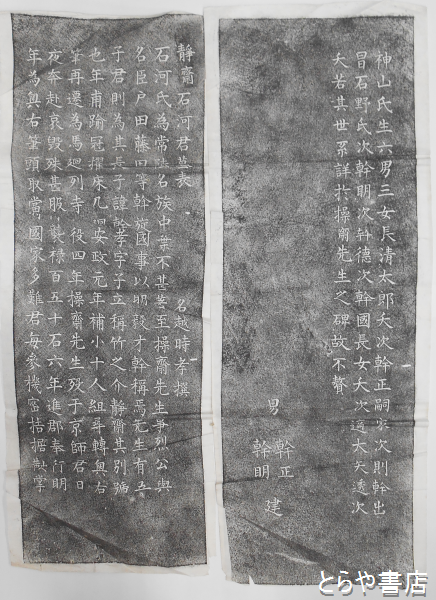 靜齋石河君墓表　名越時孝撰
石河氏為常陸名族中葉不甚著至操齋先生事烈公與
名臣戸田藤田等幹旋國事以明毅才幹稱焉先生有五
子君則為其長子諱幹孝字子立稱竹之介靜齋其別號
也年甫踰冠擢床几𢌞安政元年補小十人組尋轉奥右
筆再遷為馬廻列寺役四年操齋先生歿于京師君日
夜奔赴哀毀殊甚服闋襲祿百五十石六年進郡奉行明
年為奥右筆頭取當國家多難君毎參機密拮据執掌
神山氏生六男三女長清太郎夭次幹正嗣家次則幹出
冒石野氏次幹明次幹德次幹國長女夭次適大矢透次
夭若其世系詳於操齋先生之碑故不贅
男　幹正
幹明　建
とらや書店